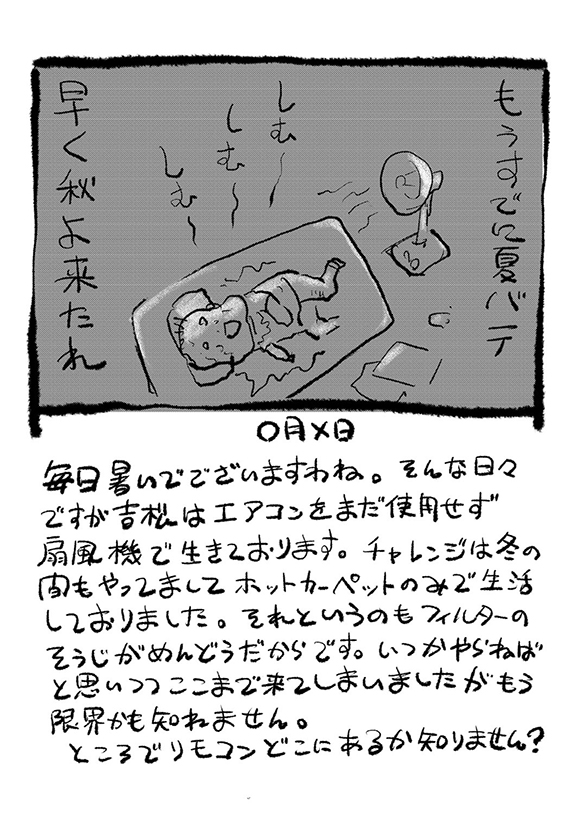 もうすでに夏バテ
しむ〜
しむ〜
しむ〜
早く秋よ来たれ
〇月×日
毎日暑いでございますわね。そんな日々
ですが吉松はエアコンをまだ使用せず
扇風機で生きております。チャレンジは冬の
間もやってましてホットカーペットのみで生活
しておりました。それというのもフィルターの
そうじがめんどうだからです。いつかやらねば
と思いつつここまで来てしまいましたがもう
限界かも知れません。
ところでリモコンどこにあるか知りません?